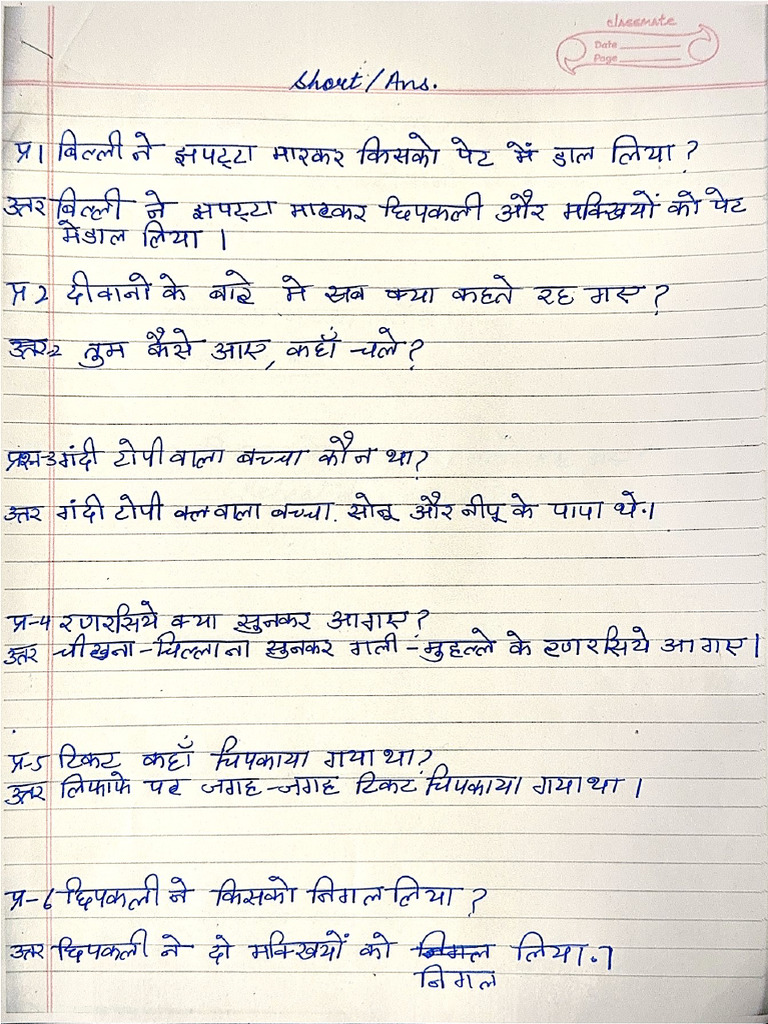 classmate
Date
Page
Short/Ans.
प्र1 बिल्ली ने झपट्टा मारकर किसको पेट में डाल लिया?
उत्तर बिल्ली ने झपट्टा मारकर छिपकली और मक्खियों को पेट
मेडाल लिया।
प्र2 दीवानो के बारे मे सब क्या कहते रह गए?
उत्तर-2 तुम कैसे आए, कहाँ चले?
प्रश्न-3 गंदी टोपी वाला बच्चा कौन था?
उत्तर गंदी टोपी वाला बच्चा. सोनू और नीपू के पापा थे.।
प्र-4 रणरसिये क्या सुनकर आगए?
उत्तर चीखना-चिल्लाना सुनकर गली-मुहल्ले के रणरसिये आ गए।
प्र-5 टिकट कहाँ चिपकाया गया था?
उत्तर लिफाफे पर जगह-जगह टिकट चिपकाया गया था।
प्र-6 छिपकली ने किसको निगल लिया?
उत्तर छिपकली ने दो मक्खियों को निगल लिया.।
निगल